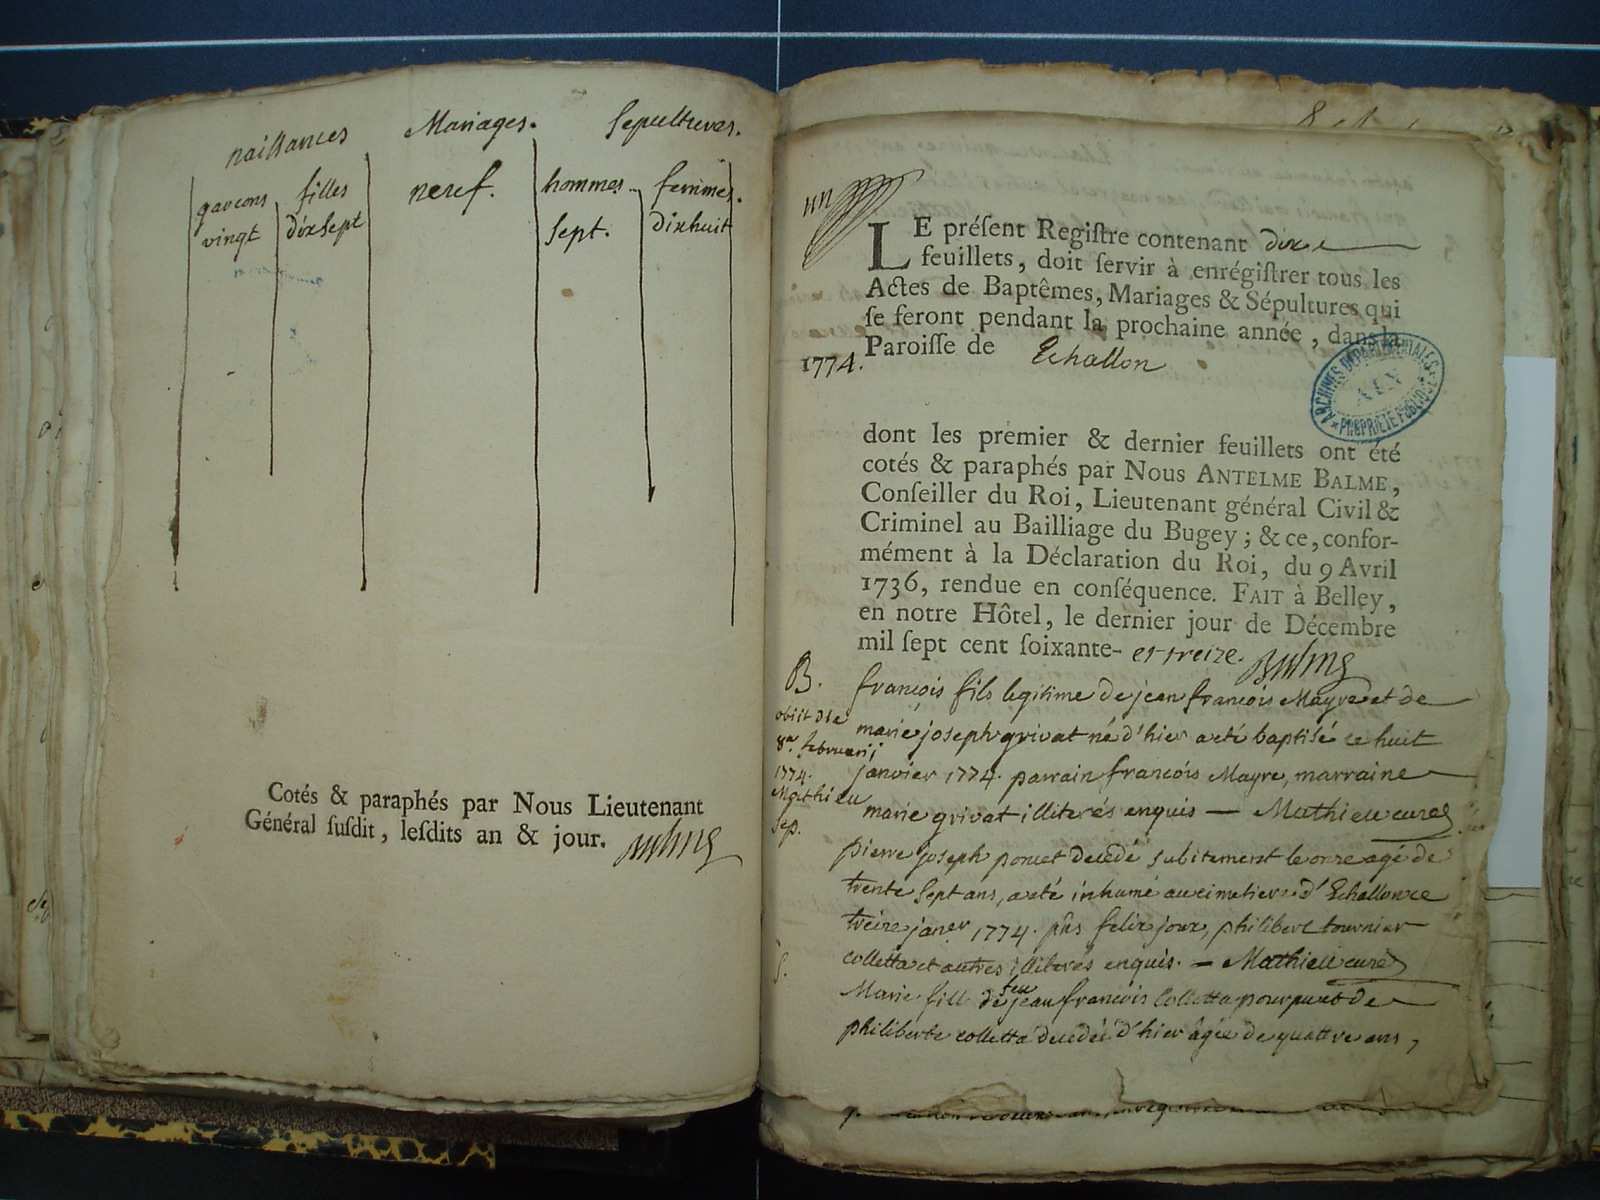 naissances Mariages. Sepultures.
garcons filles neuf. hommes. femmes.
vingt dixsept sept. dixhuit
Cotés & paraphés par Nous Lieutenant
Général ſuſdit, leſdits an & jour.
un
LE préſent Regiſtre contenant dix
feuillets, doit ſervir à enrégiſtrer tous les
Actes de Baptêmes, Mariages & Sépultures qui
ſe feront pendant la prochaine année, dans la
1774. Paroiſſe de Echallon
ARCHIVES DÉPARTEMENTALES
AIN
PROPRIÉTÉ PUBLIQUE
dont les premier & dernier feuillets ont été
cotés & paraphés par Nous ANTELME BALME,
Conſeiller du Roi, Lieutenant général Civil &
Criminel au Bailliage du Bugey; & ce, confor-
mément à la Déclaration du Roi, du 9 Avril
1736, rendue en conſéquence. FAIT à Belley,
en notre Hôtel, le dernier jour de Décembre
mil ſept cent ſoixante- et treize.
B. françois fils legitime de jean françois Mayre et de
obiit die marie joseph grivat né d'hier a eté baptisé ce huit
8a. februarii janvier 1774. parrain françois Mayre, marraine
1774.
Mathieu marie grivat illiterés enquis — Mathieu curé
Sep. pierre joseph poncet decedé subitement le onze agé de
trente sept ans, a eté inhumé au cimetiere d'Echallon ce
treize janer 1774. pns felix jour, philibert tournier
colletta et autres illiterés enquis. — Mathieu curé
S. Marie fille de feu jean françois Colletta pourpuet de
philiberte colletta decedée d'hier agée de quattre ans,